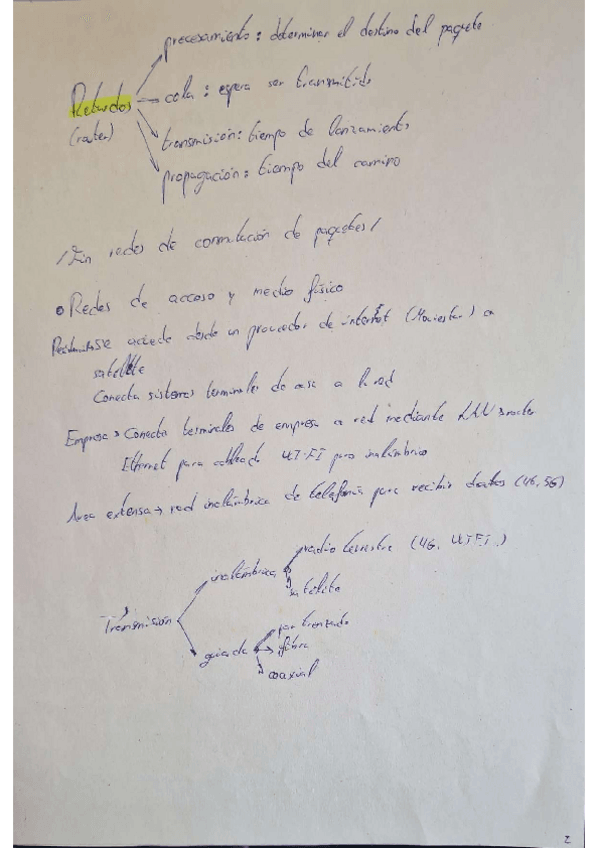 procesamiento: determinar el destino del paquete
Retardos
(router)
cola: espera ser transmitido
transmisión: tiempo de lanzamiento
propagación: tiempo del camino
/En redes de conmutación de paquetes/
• Redes de acceso y medio físico
accede desde un proveedor de internet (Movistar) o
satélite
Conecta sistemas terminales de casa a la red
Empresa → Conecta terminales de empresa a red mediante LAN router
Ethernet para cableado WI-FI para inalámbrico
Area extensa → red inalámbrica de telefonía para recibir datos (4G, 5G)
Transmisión
inalámbrica
radio terrestre (4G, WIFI.)
satélite
guiada
par trenzado
fibra
coaxial
2